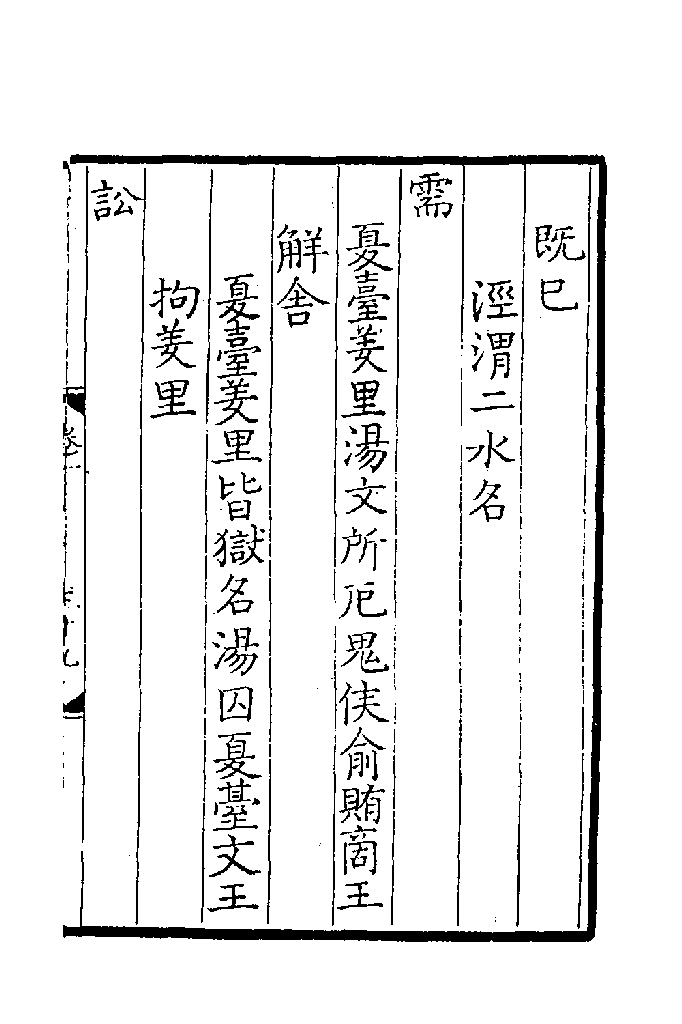 既巳
涇渭二水名
需
夏臺羑里湯文所厄鬼侯俞賄商王
解舍
夏臺羑里皆獄名湯囚夏臺文王
拘羑里
訟